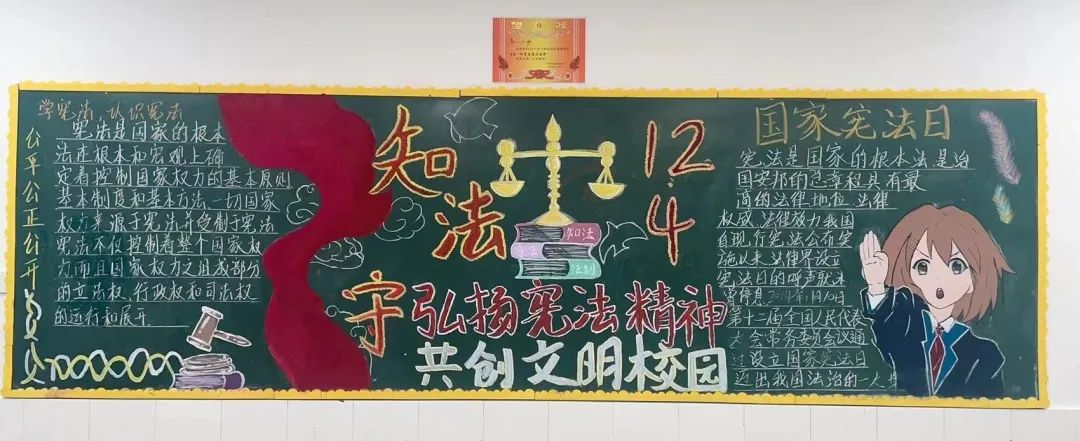 学宪法，认识宪法
公平公正公开
宪法是国家的根本
法在根本和宏观上确
定着控制国家权力的基本原则
基本制度和基本方法，一切国家
权力来源于宪法并受制于宪法
宪法不仅控制着整个国家权
力而且国家权力之组成部分
的立法权、行政权和司法权
的运行和展开
知法
守
12
4
知法
法制
弘扬宪法精神
共创文明校园
国家宪法日
宪法是国家的根本法，是治
国安邦的总章程具有最
高的法律地位、法律
权威、法律效力我国
自现行宪法公布实
施以来，法律界设立
宪法日的呼声就未
第十二届全国人民代表
大会常务委员会议通
过设立国家宪法日
迈出我国法治的一大步